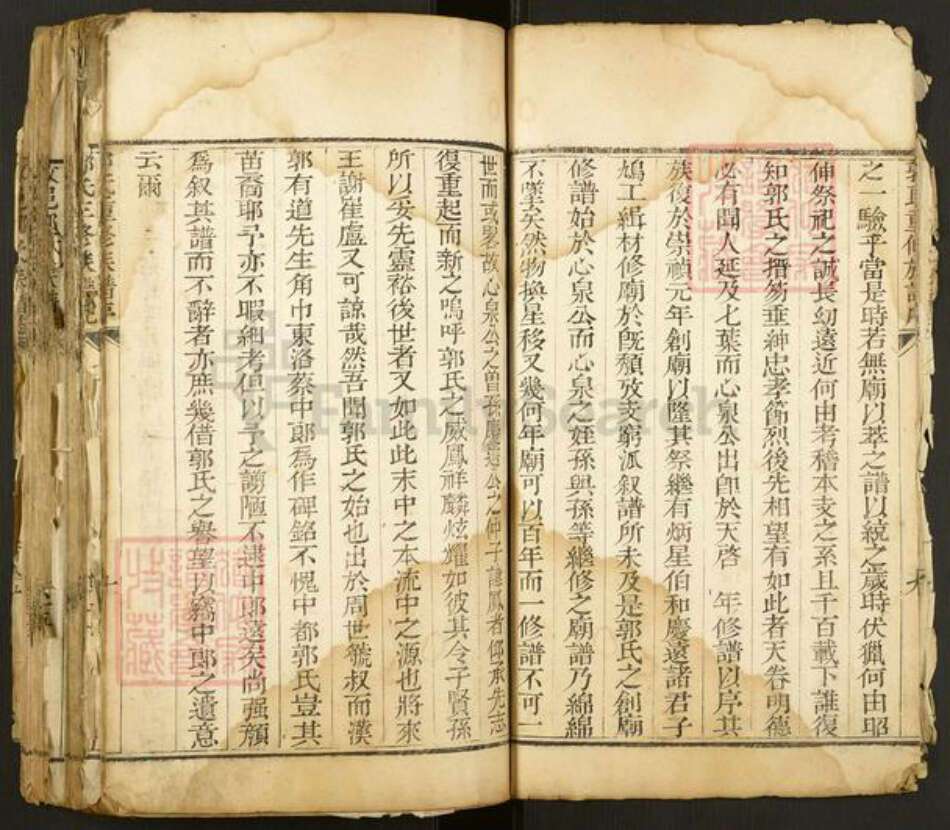 郭氏重修族譜序
之一驗乎當是時若無廟以萃之譜以統之歲時伏獵何由昭
伸祭祀之誠長幼遠近何由考稽本支之系且千百載下誰復
知郭氏之搢笏垂紳忠孝節烈後先相望有如此者天眷明德
必有聞人延及七葉而心泉公出卽於天啓 年修譜以序其
族復於崇禎元年創廟以隆其祭繼有炳星伯和慶遠諸君子
鳩工緝材修廟於旣頽攷支窮派叙譜所未及是郭氏之創廟
修譜始於心泉公而心泉之姪孫與孫等繼修之廟譜乃綿綿
不墜矣然物換星移又幾何年廟可以百年而一修譜不可一
世而或畧故心泉公之曾孫慶遠公之仲子龍鳳者僶承先志
復重起而新之嗚呼郭氏之威鳳祥麟炫耀如彼其令子賢孫
所以妥先靈裕後世者又如此此末中之本流中之源也將來
王謝崔盧又可諒哉然吾聞郭氏之始也出於周世虢叔而漢
郭有道先生角巾東洛蔡中郎為作碑銘不愧中都郭氏豈其
苗裔耶予亦不暇細考但以予之謭陋不逮中郎遠矣尚强顏
為叙其譜而不辭者亦庶幾借郭氏之譽望以竊中郎之遺意
云爾
FamilySearch